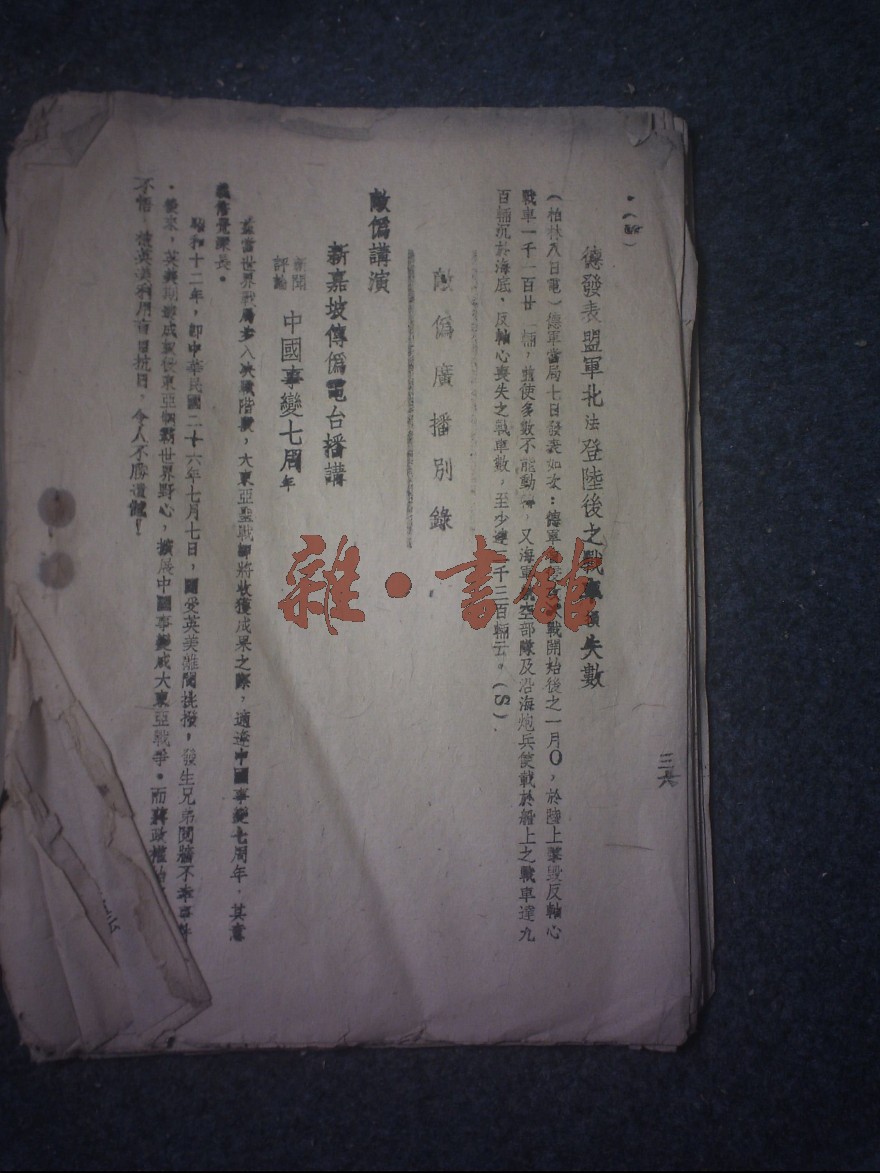 三六
德發表盟軍北法登陸後之戰車損失數
（柏林八日電）德軍當局七日發表如次：德軍 戰開始後之一月〇，於陸上擊毀反軸心
戰車一千一百廿 輛，並使多數不能動 ，又海軍 空部隊及沿海炮兵使載於船上之戰車達九
百輛沉於海底，反軸心喪失之戰車數，至少達二千三百輛云。（S）
敵偽廣播別錄
敵偽講演
新嘉坡傳偽電台播講
新聞評論 中國事變七周年
並當世界戰局步入決戰階段，大東亞聖戰即將收獲成果之際，適逢中國事變七周年，其意
義倍覺深長。
昭和十二年，卽中華民國二十六年七月七日，因受英美離間挑撥，發生兄弟鬩牆不幸事件
。後來，英美 侵東亞 霸世界野心，擴展中國事變成大東亞戰爭。而蔣政權
不悟，被英美利用盲目抗日，令人不勝遺憾！
雜·書館